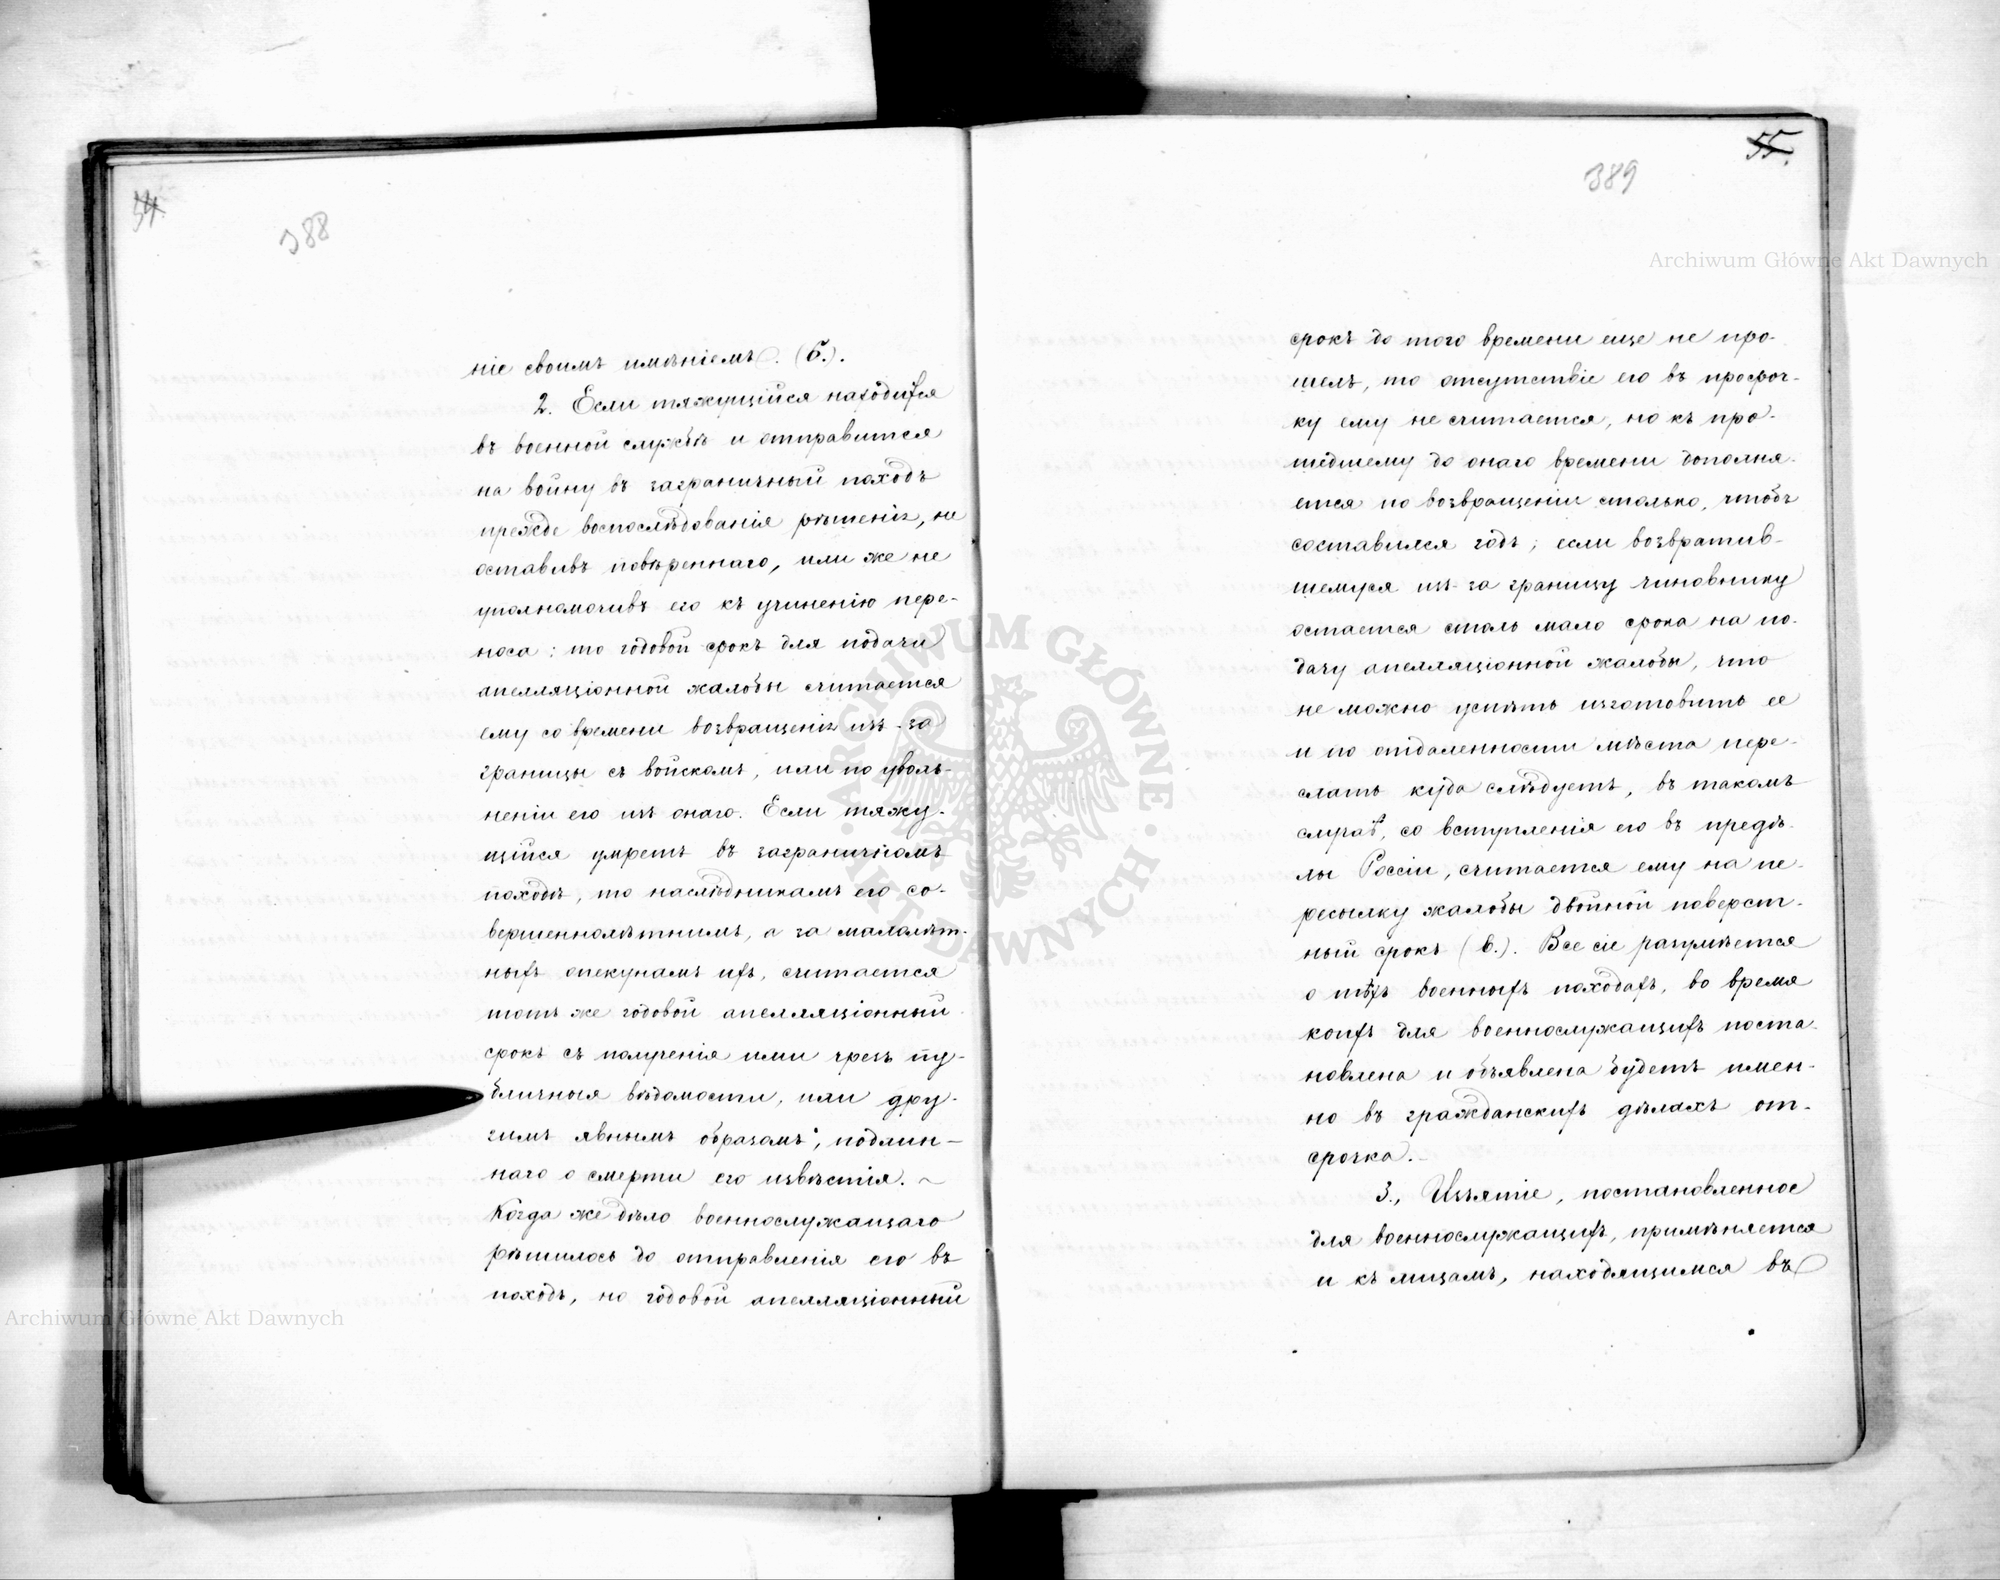 54
388
ніе своимъ имѣніемъ. (б.).
2. Если тяжущійся находится
въ военной службѣ и отправится
на войну въ заграничный походъ
прежде воспослѣдованія рѣшенія, не
оставивъ повѣреннаго, или же не
уполномочивъ его къ учиненію пере-
носа: то годовой срокъ для подачи
апелляціонной жалобы считается
ему со времени возвращенія изъ-за
границы съ войскомъ, или по уволь-
неніи его изъ онаго. Если тяжу-
щійся умретъ въ заграничномъ
походѣ, то наслѣдникамъ его со-
вершеннолѣтнимъ, а за малолѣт-
ныхъ опекунамъ ихъ, считается
тотъ же годовой апелляціонный
срокъ съ полученія ими чрезъ пу-
бличныя вѣдомости, или дру-
гимъ явнымъ образомъ, подлин-
наго о смерти его извѣстія. ~
Когда же дѣло военнослужащаго
рѣшилось до отправленія его въ
походъ, но годовой апелляціонный
55.
389
срокъ до того времени еще не про-
шелъ, то отсутствіе его въ просроч-
ку ему не считается, но къ про-
шедшему до онаго времени дополня-
ется по возвращеніи столько, чтобъ
составился годъ; если возвратив-
шемуся изъ-за границу чиновнику
остается столь мало срока на по-
дачу апелляціонной жалобы, что
не можно успѣть изготовить ее
и по отдаленности мѣста пере-
слать куда слѣдуетъ, въ такомъ
случаѣ, со вступленія его въ предѣ-
лы Россіи, считается ему на пе-
ресылку жалобы двойной поверст-
ный срокъ (в.). Все сіе разумѣется
о тѣхъ военныхъ походахъ, во время
коихъ для военнослужащихъ поста-
новлена и объявлена будетъ имен-
но въ гражданскихъ дѣлахъ от-
срочка.
3., Изъятіе, постановленное
для военнослужащихъ, примѣняется
и къ лицамъ, находящимся въ
Archiwum Główne Akt Dawnych
Archiwum Główne Akt Dawnych
ARCHIWUM GŁÓWNE AKT DAWNYCH